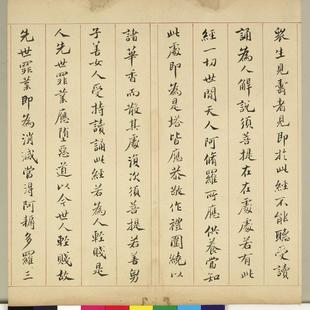 衆生見壽者見即於此經不能聽受讀
誦為人解說須菩提在在處處若有此
經一切世間天人阿脩羅所應供養當知
此處即為是塔皆應恭敬作禮圍繞以
諸華香而散其處復次須菩提若善男
子善女人受持讀誦此經若為人輕賤是
人先世罪業應墮惡道以今世人輕賤故
先世罪業即為消滅當得阿耨多羅三